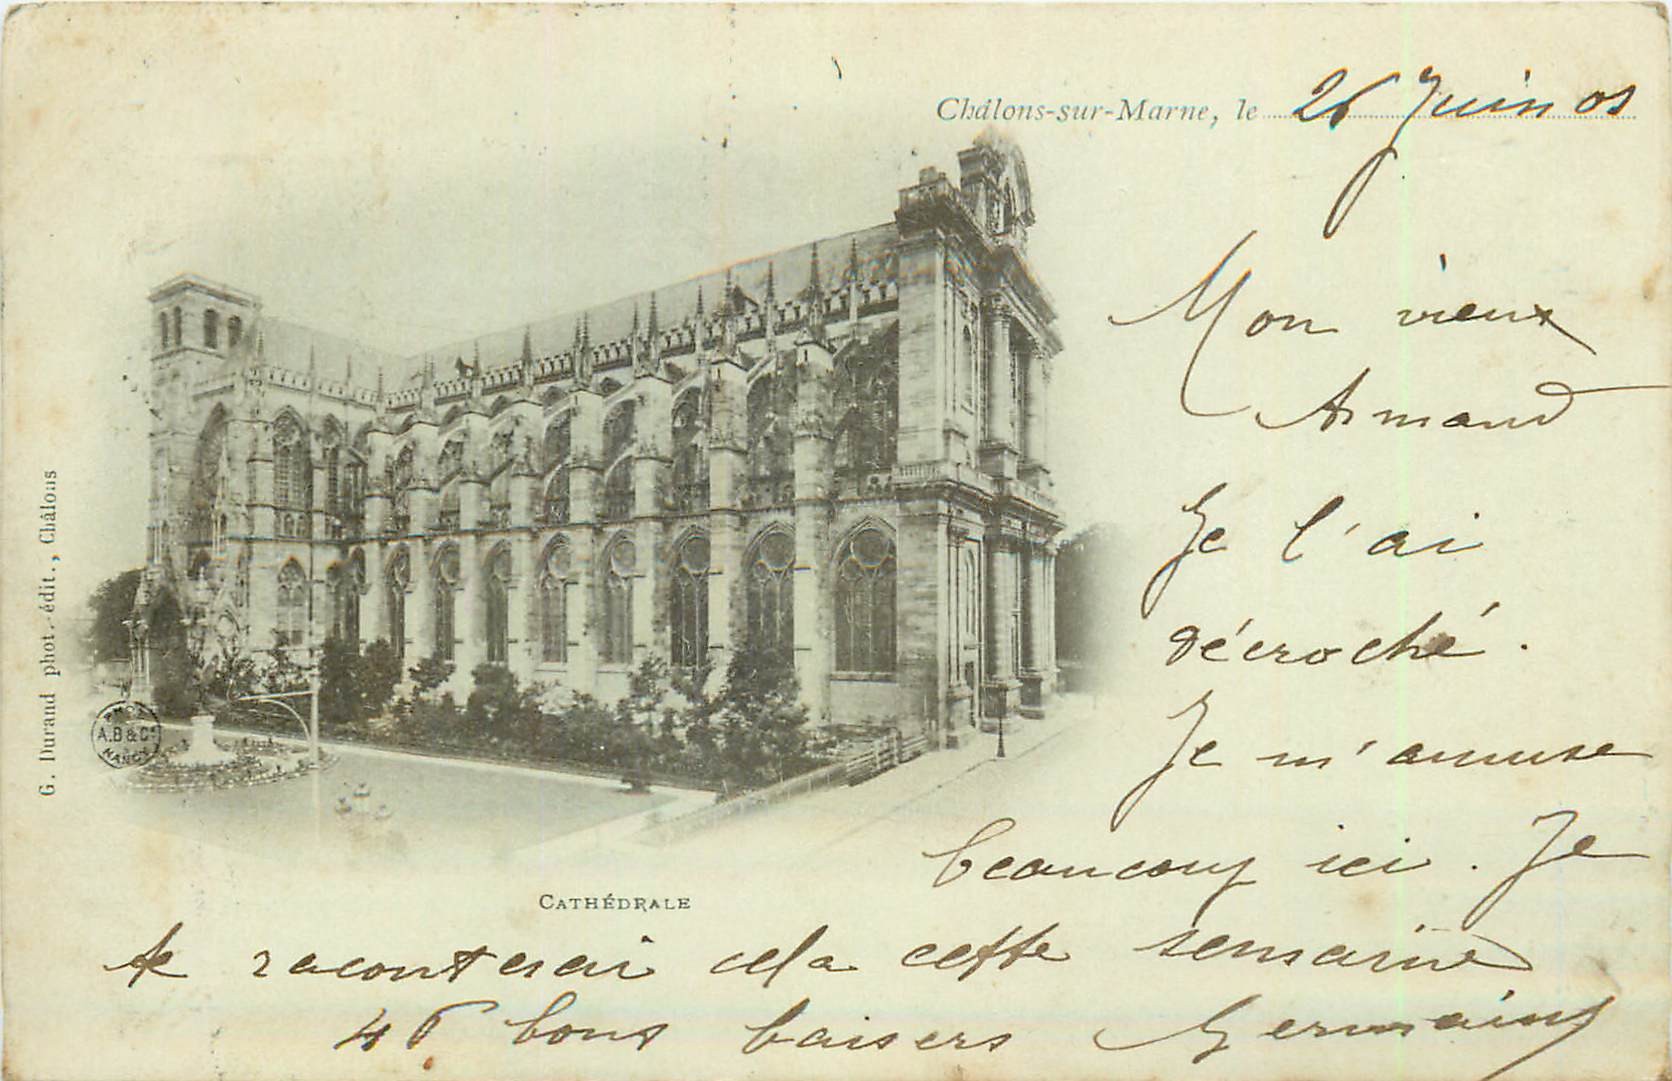 Châlons-sur-Marne, le 26 Juin 01
Mon vieux
Armand
Je l'ai
décroché.
Je m'amuse
beaucoup ici. Je
te raconterai cela cette semaine
46 bons baisers Germaine
CATHÉDRALE
G. Durand phot.-édit., Châlons
PHOT
A.B & Cie
NANCY